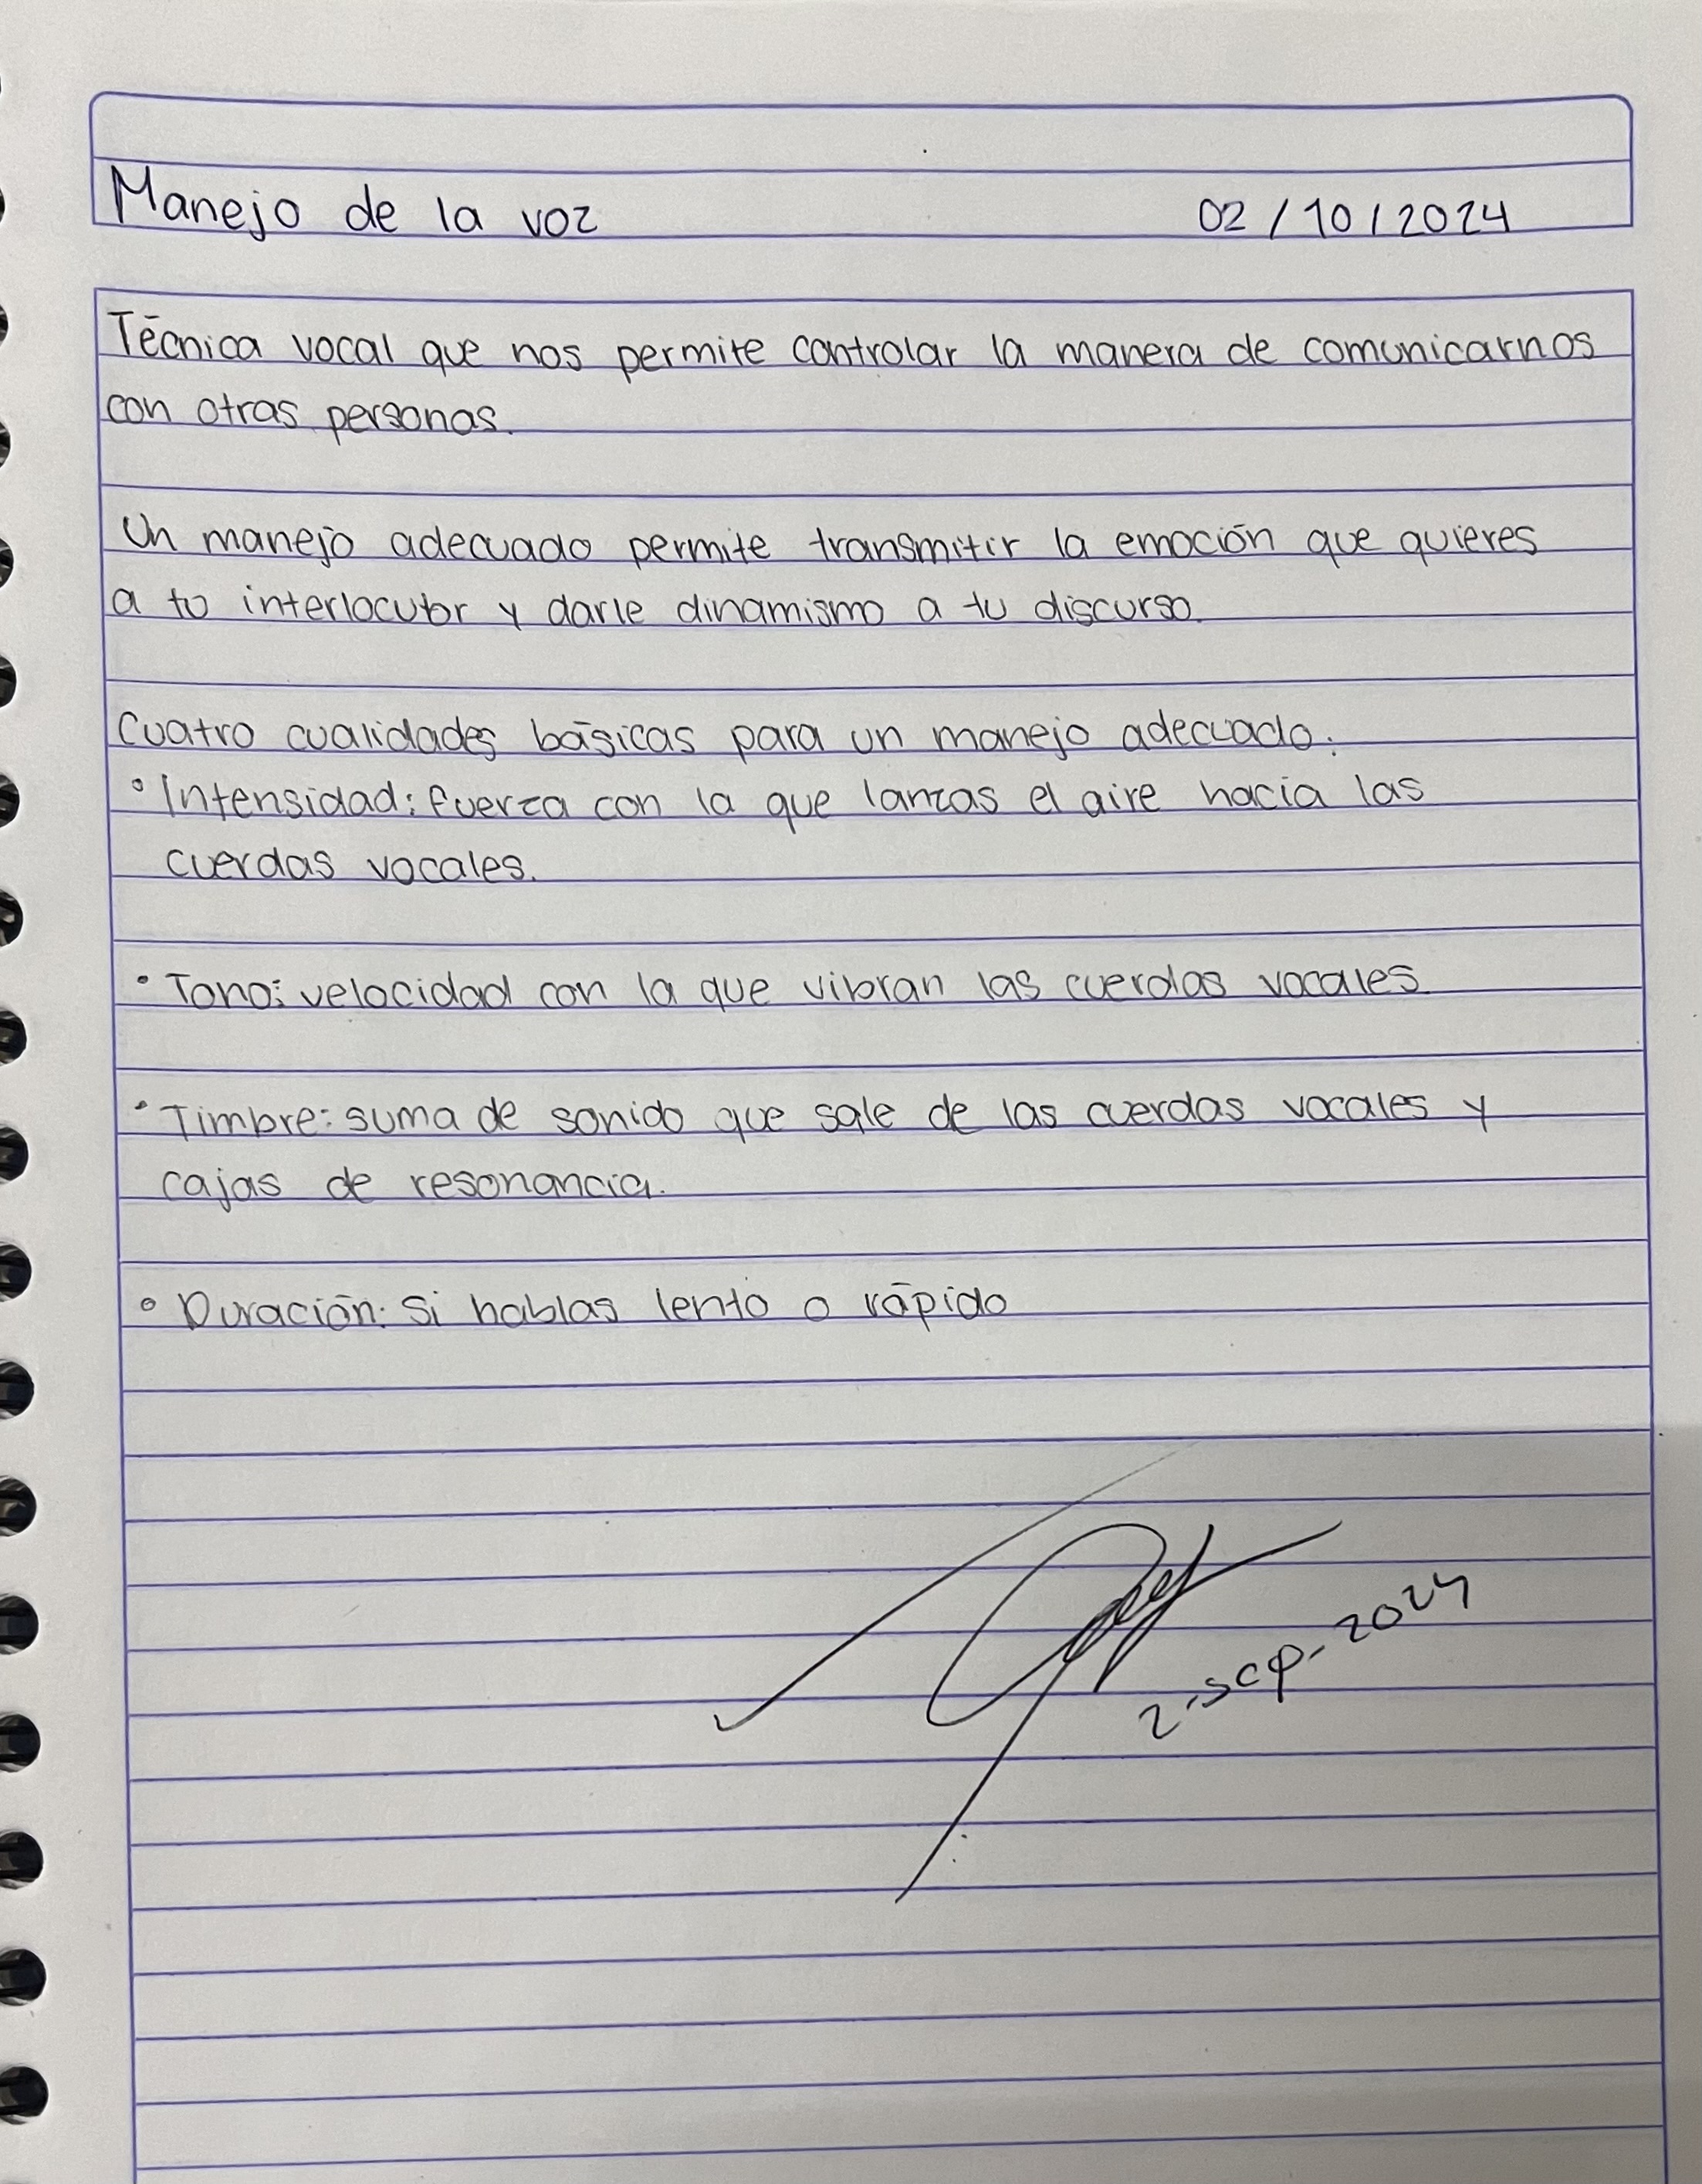 Manejo de la voz 02/10/2024
Técnica vocal que nos permite controlar la manera de comunicarnos
con otras personas.
Un manejo adecuado permite transmitir la emoción que quieres
a tu interlocutor y darle dinamismo a tu discurso.
Cuatro cualidades básicas para un manejo adecuado:
° Intensidad: fuerza con la que lanzas el aire hacia las
cuerdas vocales.
• Tono: velocidad con la que vibran las cuerdas vocales.
• Timbre: suma de sonido que sale de las cuerdas vocales y
cajas de resonancia.
° Duración: Si hablas lento o rápido
2-sep-2024